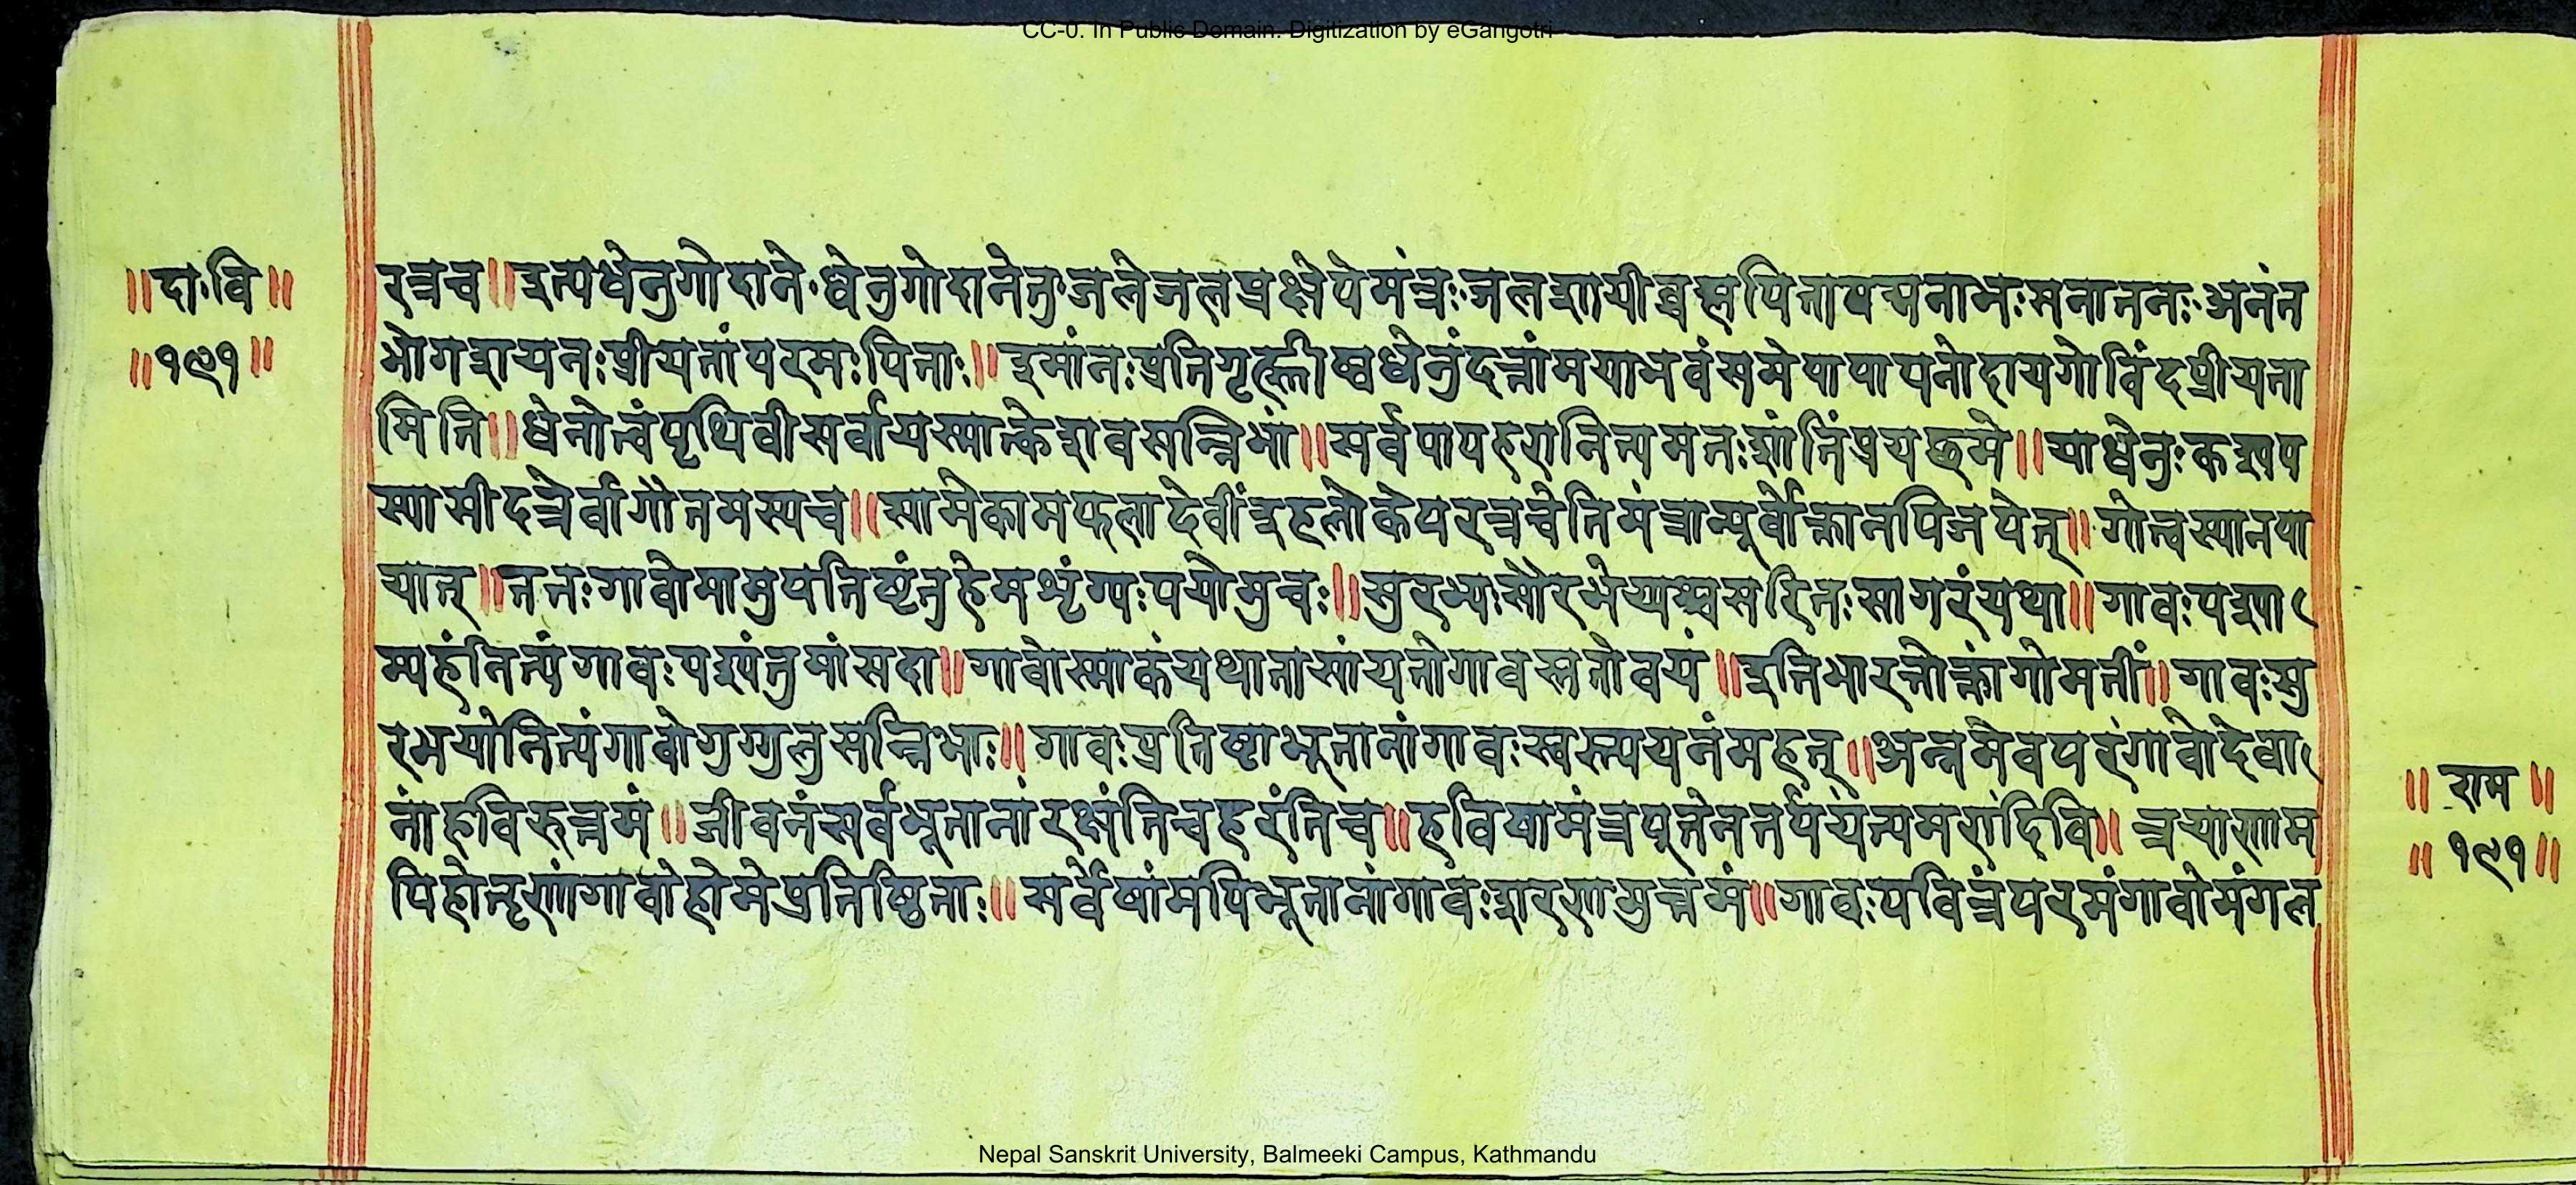 CC-0. In Public Domain. Digitization by eGangotri
॥दा॰वि॥
॥१९१॥
रत्रच॥इत्यधेनुगोदाने॰धेनुगोदानेतु॰जलेजलप्रक्षेपेमंत्रः॰जलशायीब्रह्मपितापद्मनाभःसनातनः॰अनंत
भोगशयनःप्रीयतांपरमःपिताः॥इमांनःप्रतिगृह्णीष्वधेनुंदत्तांमयाभवंसमेपापापनोदायगोविंदप्रीयता
मिति॥धेनोत्वंपृथिवीसर्वायस्मात्केशवसन्निभां॥सर्वपापहरानित्यमतःशांतिंप्रयछमे॥याधेनुःकश्यप
स्यासीदत्रेर्वागौतमस्यच॥सामेकामफलादेवींइहलोकेपरत्रचेतिमंत्रान्पूर्वोक्तानपिजपेत्॥गोत्वस्यानपा
यात्॥ततःगावोमामुपतिष्टंतुहेमशृंग्यःपयोमुचः॥सुरभ्यःसौरभेय्यश्चसरितःसागरंयथा॥गावःपश्या
म्यहंनित्यंगावःपश्यंतुमांसदा॥गावोस्माकंयथातासांयतोगावस्ततोवयं॥इतिभारतोक्तांगोमतीं॥गावःसु
रभयोनित्यंगावोगुग्गुलुसन्निभाः॥गावःप्रतिष्टाभूतानांगावःस्वस्त्ययनंमहत्॥अन्नमेवपरंगावोदेवा
नांहविरुत्तमं॥जीवनंसर्वभूतानांरक्षंतिचहरंतिच॥हविषामंत्रपूतेनतर्पयंत्यमरांदिवि॥त्रयाणाम
पिहोतृणांगावोहोमेप्रतिष्ठिताः॥सर्वेषांमपिभूतानांगावःशरणमुत्तमं॥गावःपवित्रंपरमंगावोमंगल
॥राम॥
॥१९१॥
Nepal Sanskrit University, Balmeeki Campus, Kathmandu